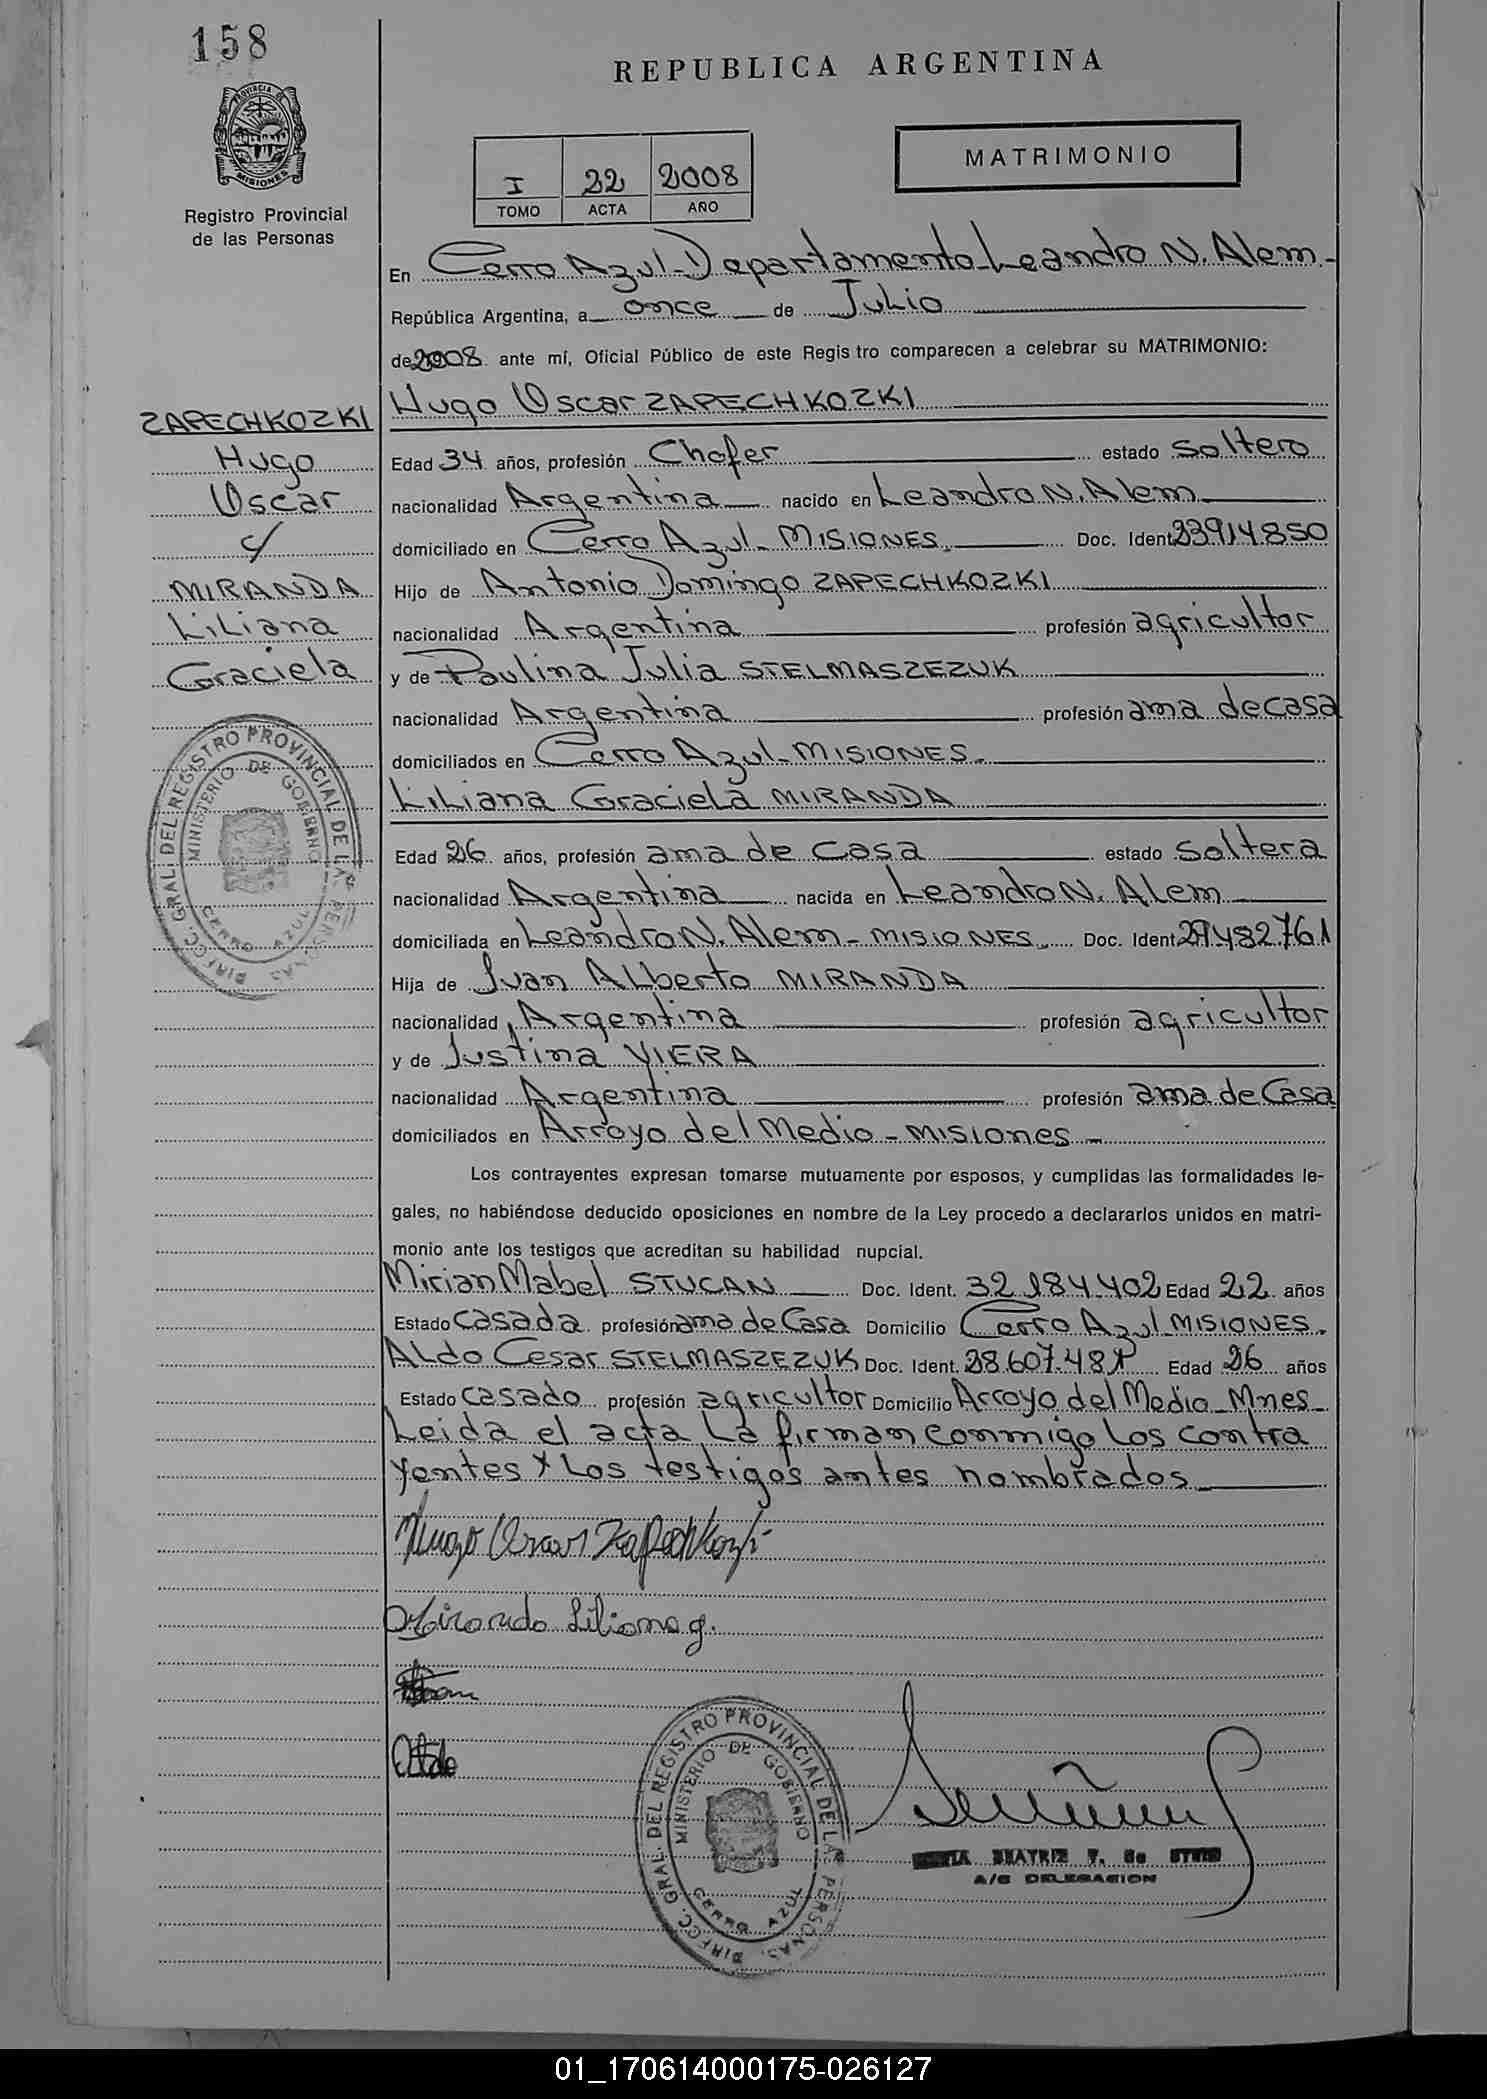 158
PROVINCIA DE
MISIONES
Registro Provincial
de las Personas
REPUBLICA ARGENTINA
MATRIMONIO
I 22 2008
TOMO ACTA AÑO
En Cerro Azul-Departamento-Leandro N. Alem.-
República Argentina, a once de Julio
de 2008 ante mí, Oficial Público de este Registro comparecen a celebrar su MATRIMONIO:
Hugo Oscar ZAPECHKOZKI
ZAPECHKOZKI
Hugo
Oscar
c/
MIRANDA
Liliana
Graciela
Edad 34 años, profesión Chofer estado soltero
nacionalidad Argentina nacido en Leandro N. Alem
domiciliado en Cerro Azul-MISIONES. Doc. Ident. 23914850
Hijo de Antonio Domingo ZAPECHKOZKI
nacionalidad Argentina profesión agricultor
y de Paulina Julia STELMASZEZUK
nacionalidad Argentina profesión ama de casa
domiciliados en Cerro Azul-MISIONES.
Liliana Graciela MIRANDA
Edad 26 años, profesión ama de casa estado soltera
nacionalidad Argentina nacida en Leandro N. Alem
domiciliada en Leandro N. Alem-MISIONES. Doc. Ident. 29.482.761
Hija de Juan Alberto MIRANDA
nacionalidad Argentina profesión agricultor
y de Justina VIERA
nacionalidad Argentina profesión ama de Casa
domiciliados en Arroyo del Medio-MISIONES-
Los contrayentes expresan tomarse mutuamente por esposos, y cumplidas las formalidades le-
gales, no habiéndose deducido oposiciones en nombre de la Ley procedo a declararlos unidos en matri-
monio ante los testigos que acreditan su habilidad nupcial.
Mirian Mabel STUCAN Doc. Ident. 32.184.402 Edad 22 años
Estado casada profesión ama de Casa Domicilio Cerro Azul-MISIONES.
Aldo Cesar STELMASZEZUK Doc. Ident. 28.607.481 Edad 26 años
Estado casado profesión agricultor Domicilio Arroyo del Medio-Mnes-
Leida el acta La firman conmigo los contra
yentes y Los testigos antes nombrados
Hugo Oscar Zapechkozki
Miranda Liliana g.
Aldo
DIRECC. GRAL. DEL REGISTRO PROVINCIAL DE LAS PERSONAS
MINISTERIO DE GOBIERNO
CERRO AZUL
DIRECC. GRAL. DEL REGISTRO PROVINCIAL DE LAS PERSONAS
MINISTERIO DE GOBIERNO
CERRO AZUL
BEATRIZ
A/C DELEGACION
01_170614000175-026127